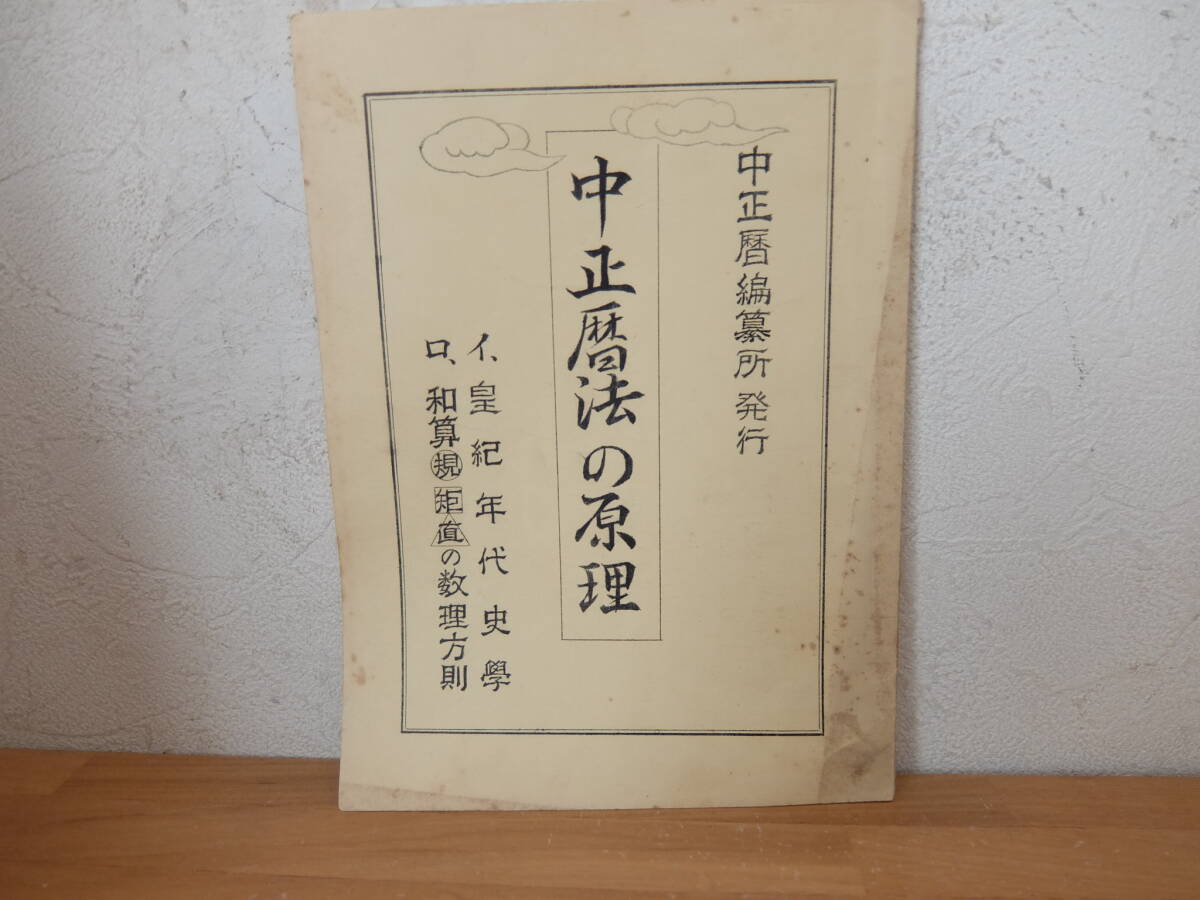 中正暦編纂所発行
中正暦法の原理
イ、皇紀年代史學
ロ、和算規矩直の数理方則